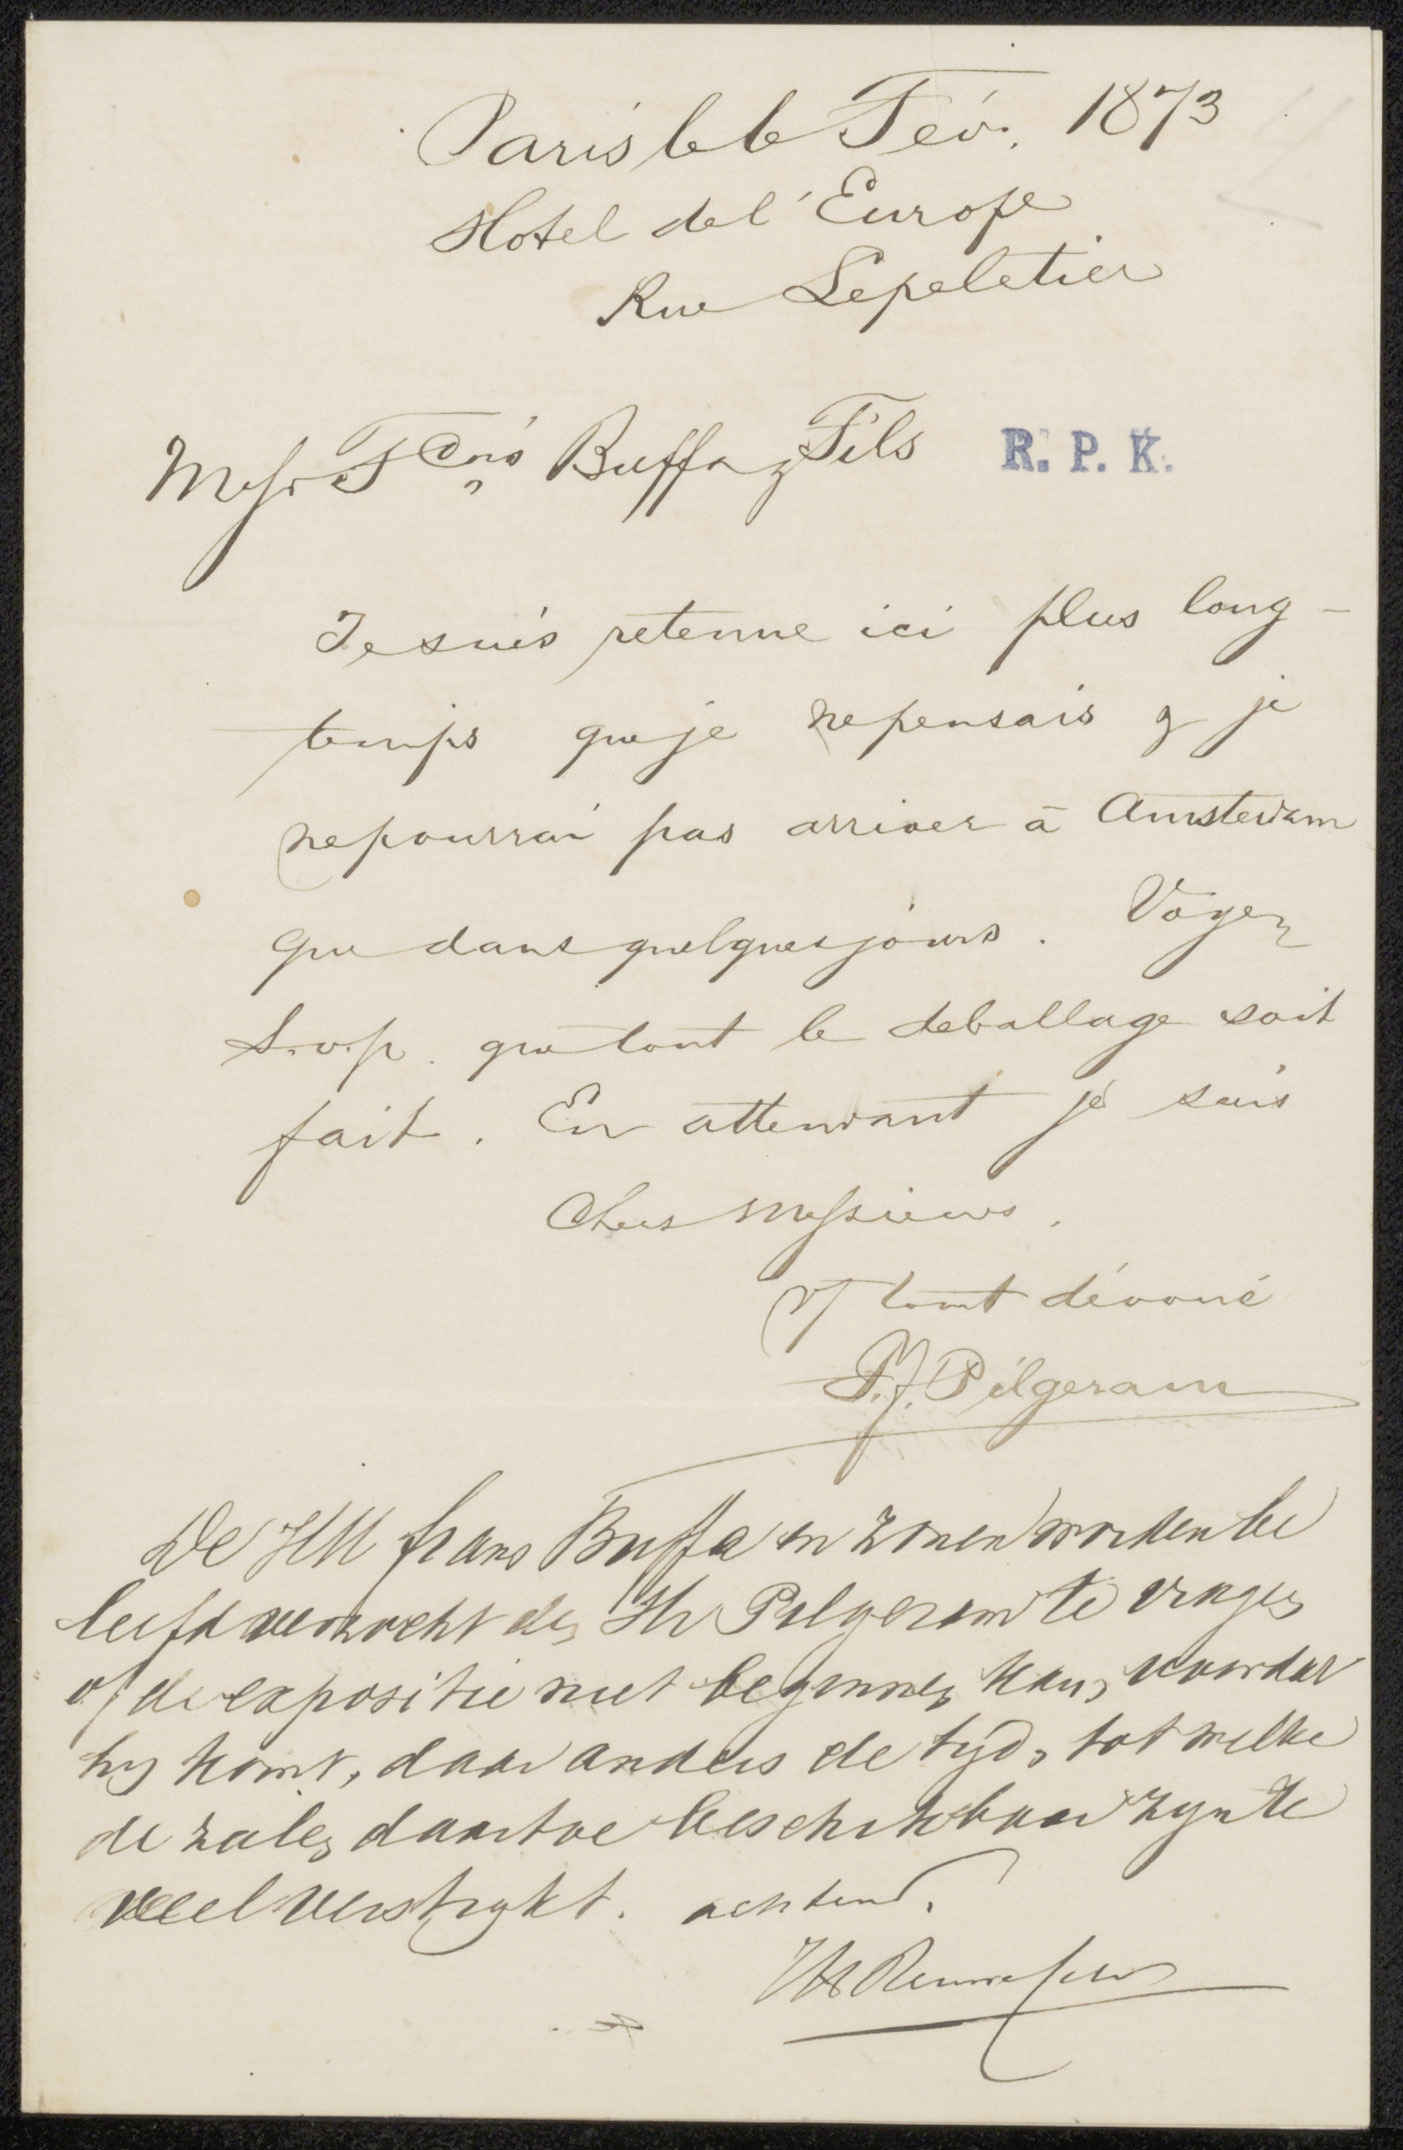 Paris le 6 Fév. 1873
Hotel de l'Europe
Rue Lepeletier
Messrs Fçois Buffa & Fils
R. P. K.
Je suis retenue ici plus long-
temps que je ne pensais & je
ne pourrai pas arriver à Amsterdam
que dans quelques jours. Voyez
S.v.p. que tout le deballage soit
fait. En attendant je suis
Chers Messieurs,
Vt tout dévoué
P.J. Pilgeram
De HH frans Buffa en zonen worden be
leefd verzocht den Hr Pilgeram te vragen
of de expositie niet beginnen kan, voordat
hy komt, daar anders de tyd, tot welke
de zalen daartoe beschikbaar zyn te
veel verstrykt. achtend,